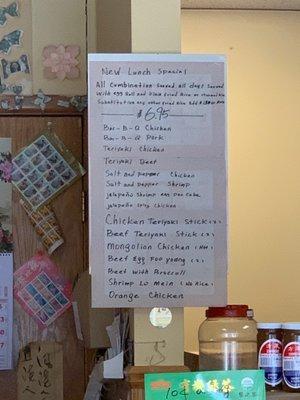 New Lunch Special
All Combination Served all days Served
with egg Roll and Plain Fried Rice or
Substitution any other Fried Rice Add
$6.95
Bar-B-Q Chicken
Bar-B-Q Pork
Teriyaki Chicken
Teriyaki Beef
Salt and Pepper Chicken
Salt and Pepper Shrimp
Jalapeño Shrimp
Jalapeño Spicy Chicken
Chicken Teriyaki Stick (2)
Beef Teriyaki Stick (2)
Mongolian Chicken (Hot)
Beef Egg Foo Young (2)
Beef with Broccoli
Shrimp Lo Mein (No Rice)
Orange Chicken